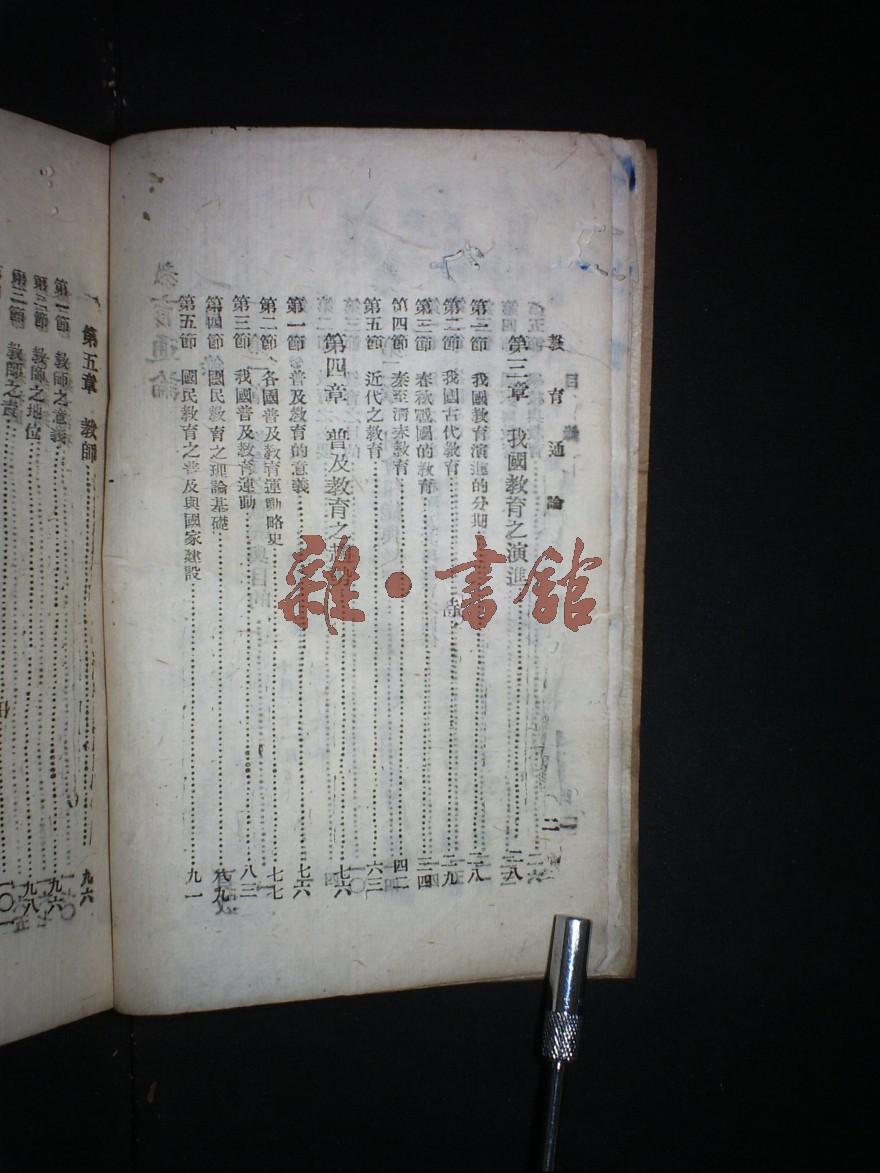 教育通論
二
第三章　我國教育之演進……二八
第一節　我國教育演進的分期……二八
第二節　我國古代教育……二九
第三節　春秋戰國的教育……三四
第四節　秦至清末教育……四二
第五節　近代之教育……六三
第四章　普及教育之趨勢……七六
第一節　普及教育的意義……七六
第二節　各國普及教育運動略史……七七
第三節　我國普及教育運動……八三
第四節　國民教育之理論基礎……八九
第五節　國民教育之普及與國家建設……九一
第五章　教師……九六
第一節　教師之意義……九六
第二節　教師之地位……九八
第三節　教師之責……一〇一
雜·書館